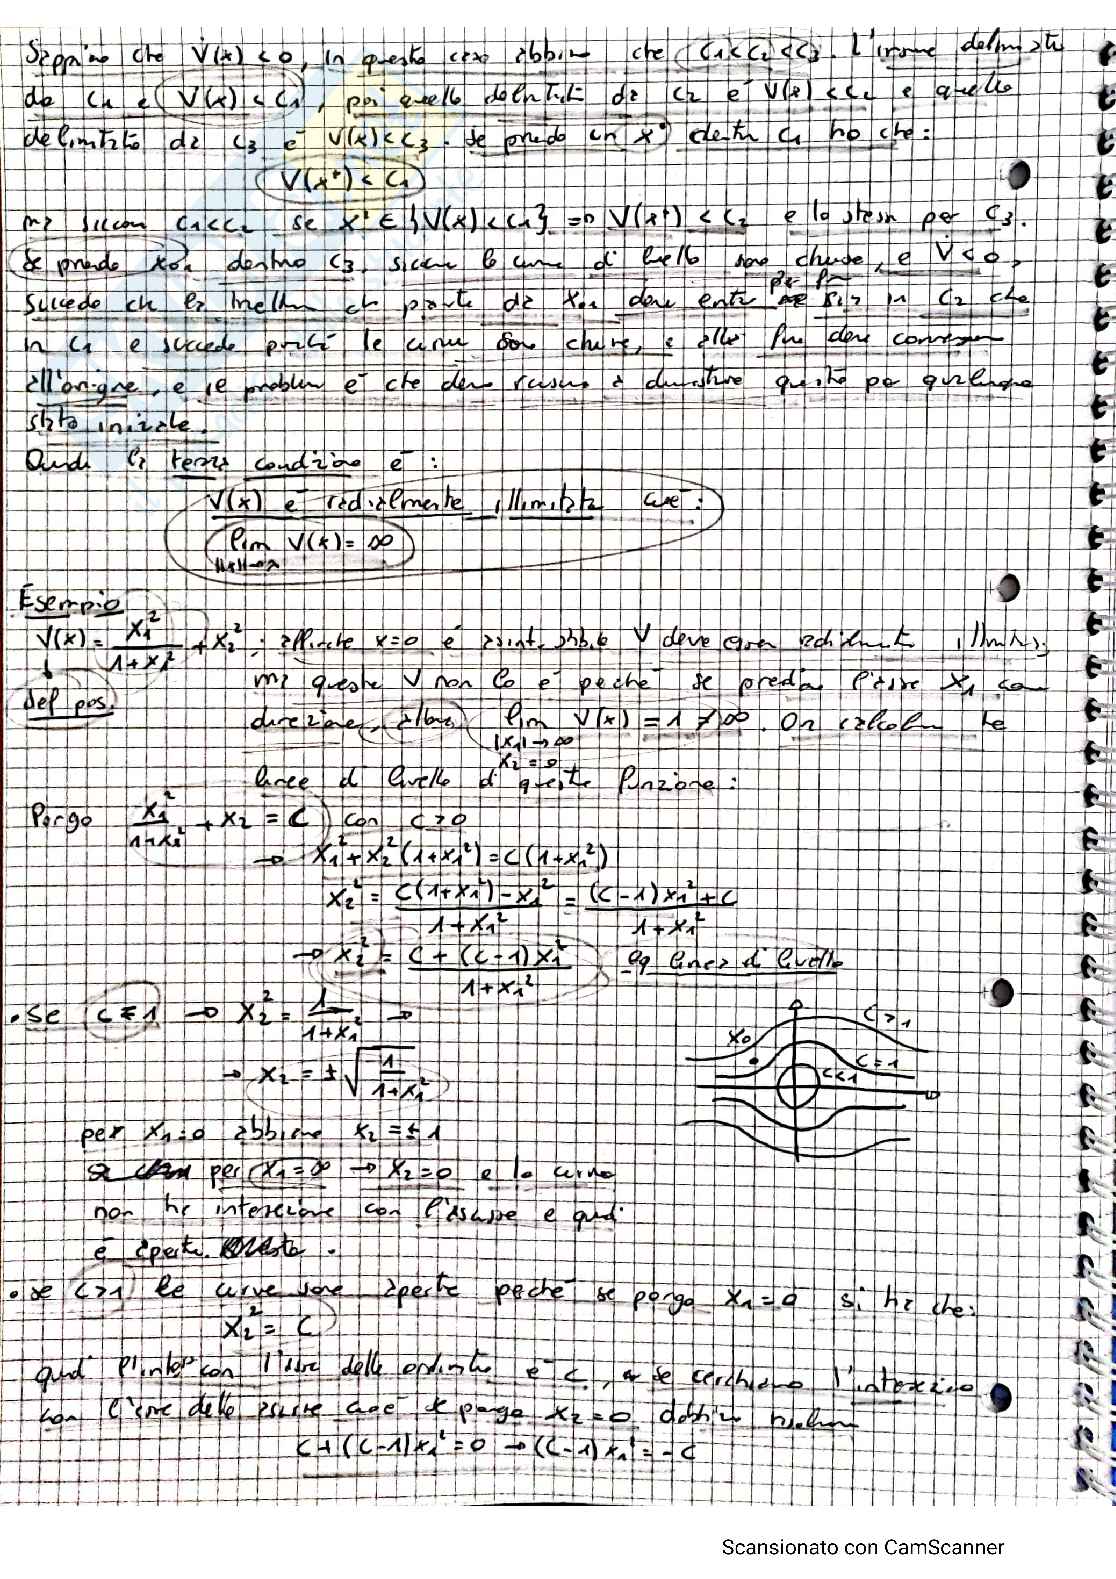 Sappiamo che V̇(x) < 0, in questo caso abbiamo che C1<C2<C3. L'insieme delimitato
da C1 è V(x) < C1, poi quello delimitato da C2 è V(x) < C2 e quello
delimitato da C3 è V(x) < C3. se prendo un x* dentro C1 ho che:
V(x*) < C1
ma siccome C1<C2 se x* ∈ {V(x) < C1} => V(x*) < C2 e lo stesso per C3.
Se prendo x01 dentro C3, siccome le curve di livello sono chiuse, e V̇ < 0,
succede che la che parte da x01 deve entrare per fin sia in C2 che
in C1 e succede perché le curve sono chiuse, e alla fine deve convergere
all'origine, e il problema è che devo riuscire a dimostrare questo per qualunque
stato iniziale.
Quindi la terza condizione è:
V(x) è radialmente illimitata cioè:
lim V(x) = ∞
||x||→∞
Esempio
V(x) = x1²/(1+x1²) + x2² ; affinché x=0 è asint. stabile V deve esser radialmente illimitata,
def pos. ma questa V non lo è perché se prendiamo l'asse x1 come
direzione, allora lim V(x) = 1 ≠ ∞. Ora calcoliamo le
|x1|→∞
x2=0
linee di livello di questa funzione:
Pongo x1²/(1+x1²) + x2 = C con C>0
→ x1² + x2²(1+x1²) = C(1+x1²)
x2² = (C(1+x1²) - x1²)/(1+x1²) = ((C-1)x1² + C)/(1+x1²)
→ x2² = (C + (C-1)x1²)/(1+x1²) eq linea di livello
• se C=1 → x2² = 1/(1+x1²) →
→ x2 = ±√(1/(1+x1²))
x0 C>1
C=1
C<1
per x1=0 abbiamo x2 = ±1
per x1=∞ → x2=0 e la curva
non ha intersezione con l'ascisse e quindi
è aperta.
• se C>1 le curve sono aperte perché se pongo x1=0 si ha che:
x2² = C
quindi l'inters con l'asse delle ordinate è C, se cerchiamo l'intersezione
con l'asse delle ascisse cioè se pongo x2=0 dobbiamo risolvere
C+(C-1)x1²=0 → (C-1)x1² = -C
Scansionato con CamScanner